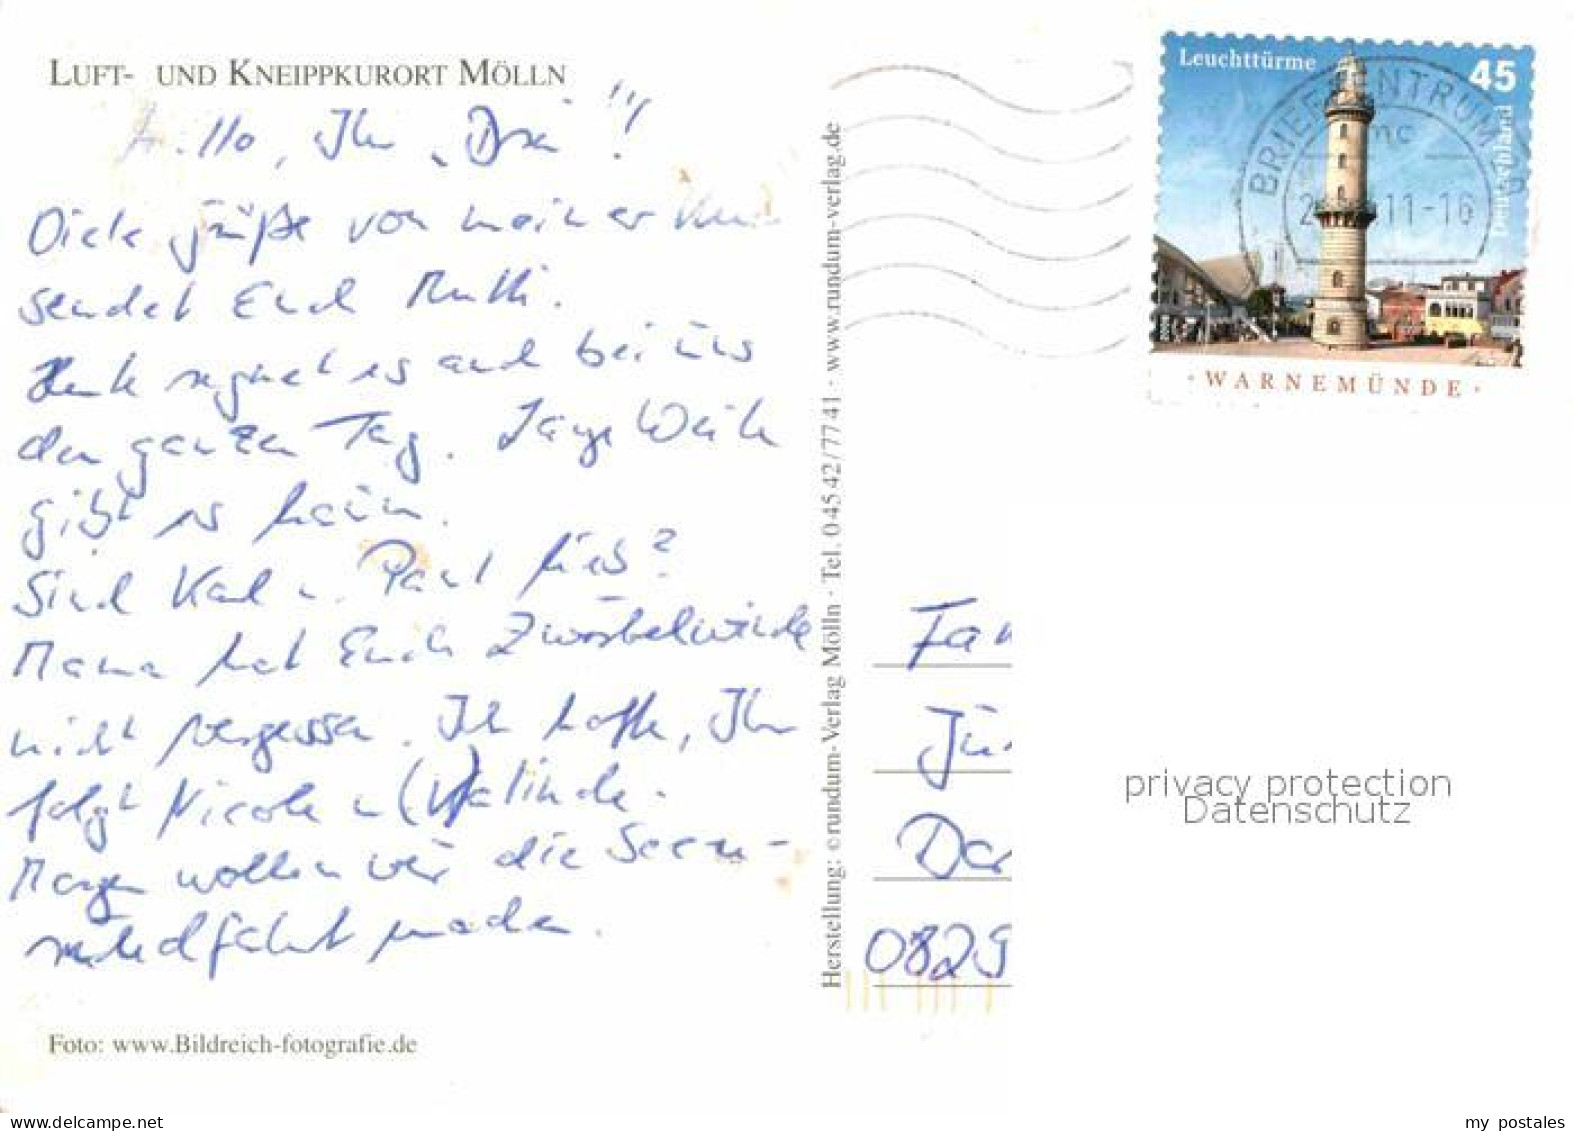 LUFT- UND KNEIPPKURORT MÖLLN
Ihr „Drei"!
Viele Grüße von meiner Kur
sendet Euch Mutti.
Heute regnet es auch bei uns
den ganzen Tag. Lange Weile
gibt es kaum.
Sind Karl u. Paul lieb?
Mama hat Euch Zwörbelwinde
nicht vergessen. Ich hoffe, Ihr
folgt Nicole u. (M)alinde.
Morgen wollen wir die Seen-
rundfahrt machen.
Foto: www.Bildreich-fotografie.de
Herstellung: © rundum-Verlag Mölln · Tel. 04542/7741 · www.rundum-verlag.de
Leuchttürme
45
Deutschland
· WARNEMÜNDE ·
BRIEFZENTRUM
mc
11-16
Fam
Jü
Dor
0829
privacy protection
Datenschutz
www.delcampe.net
my_postales